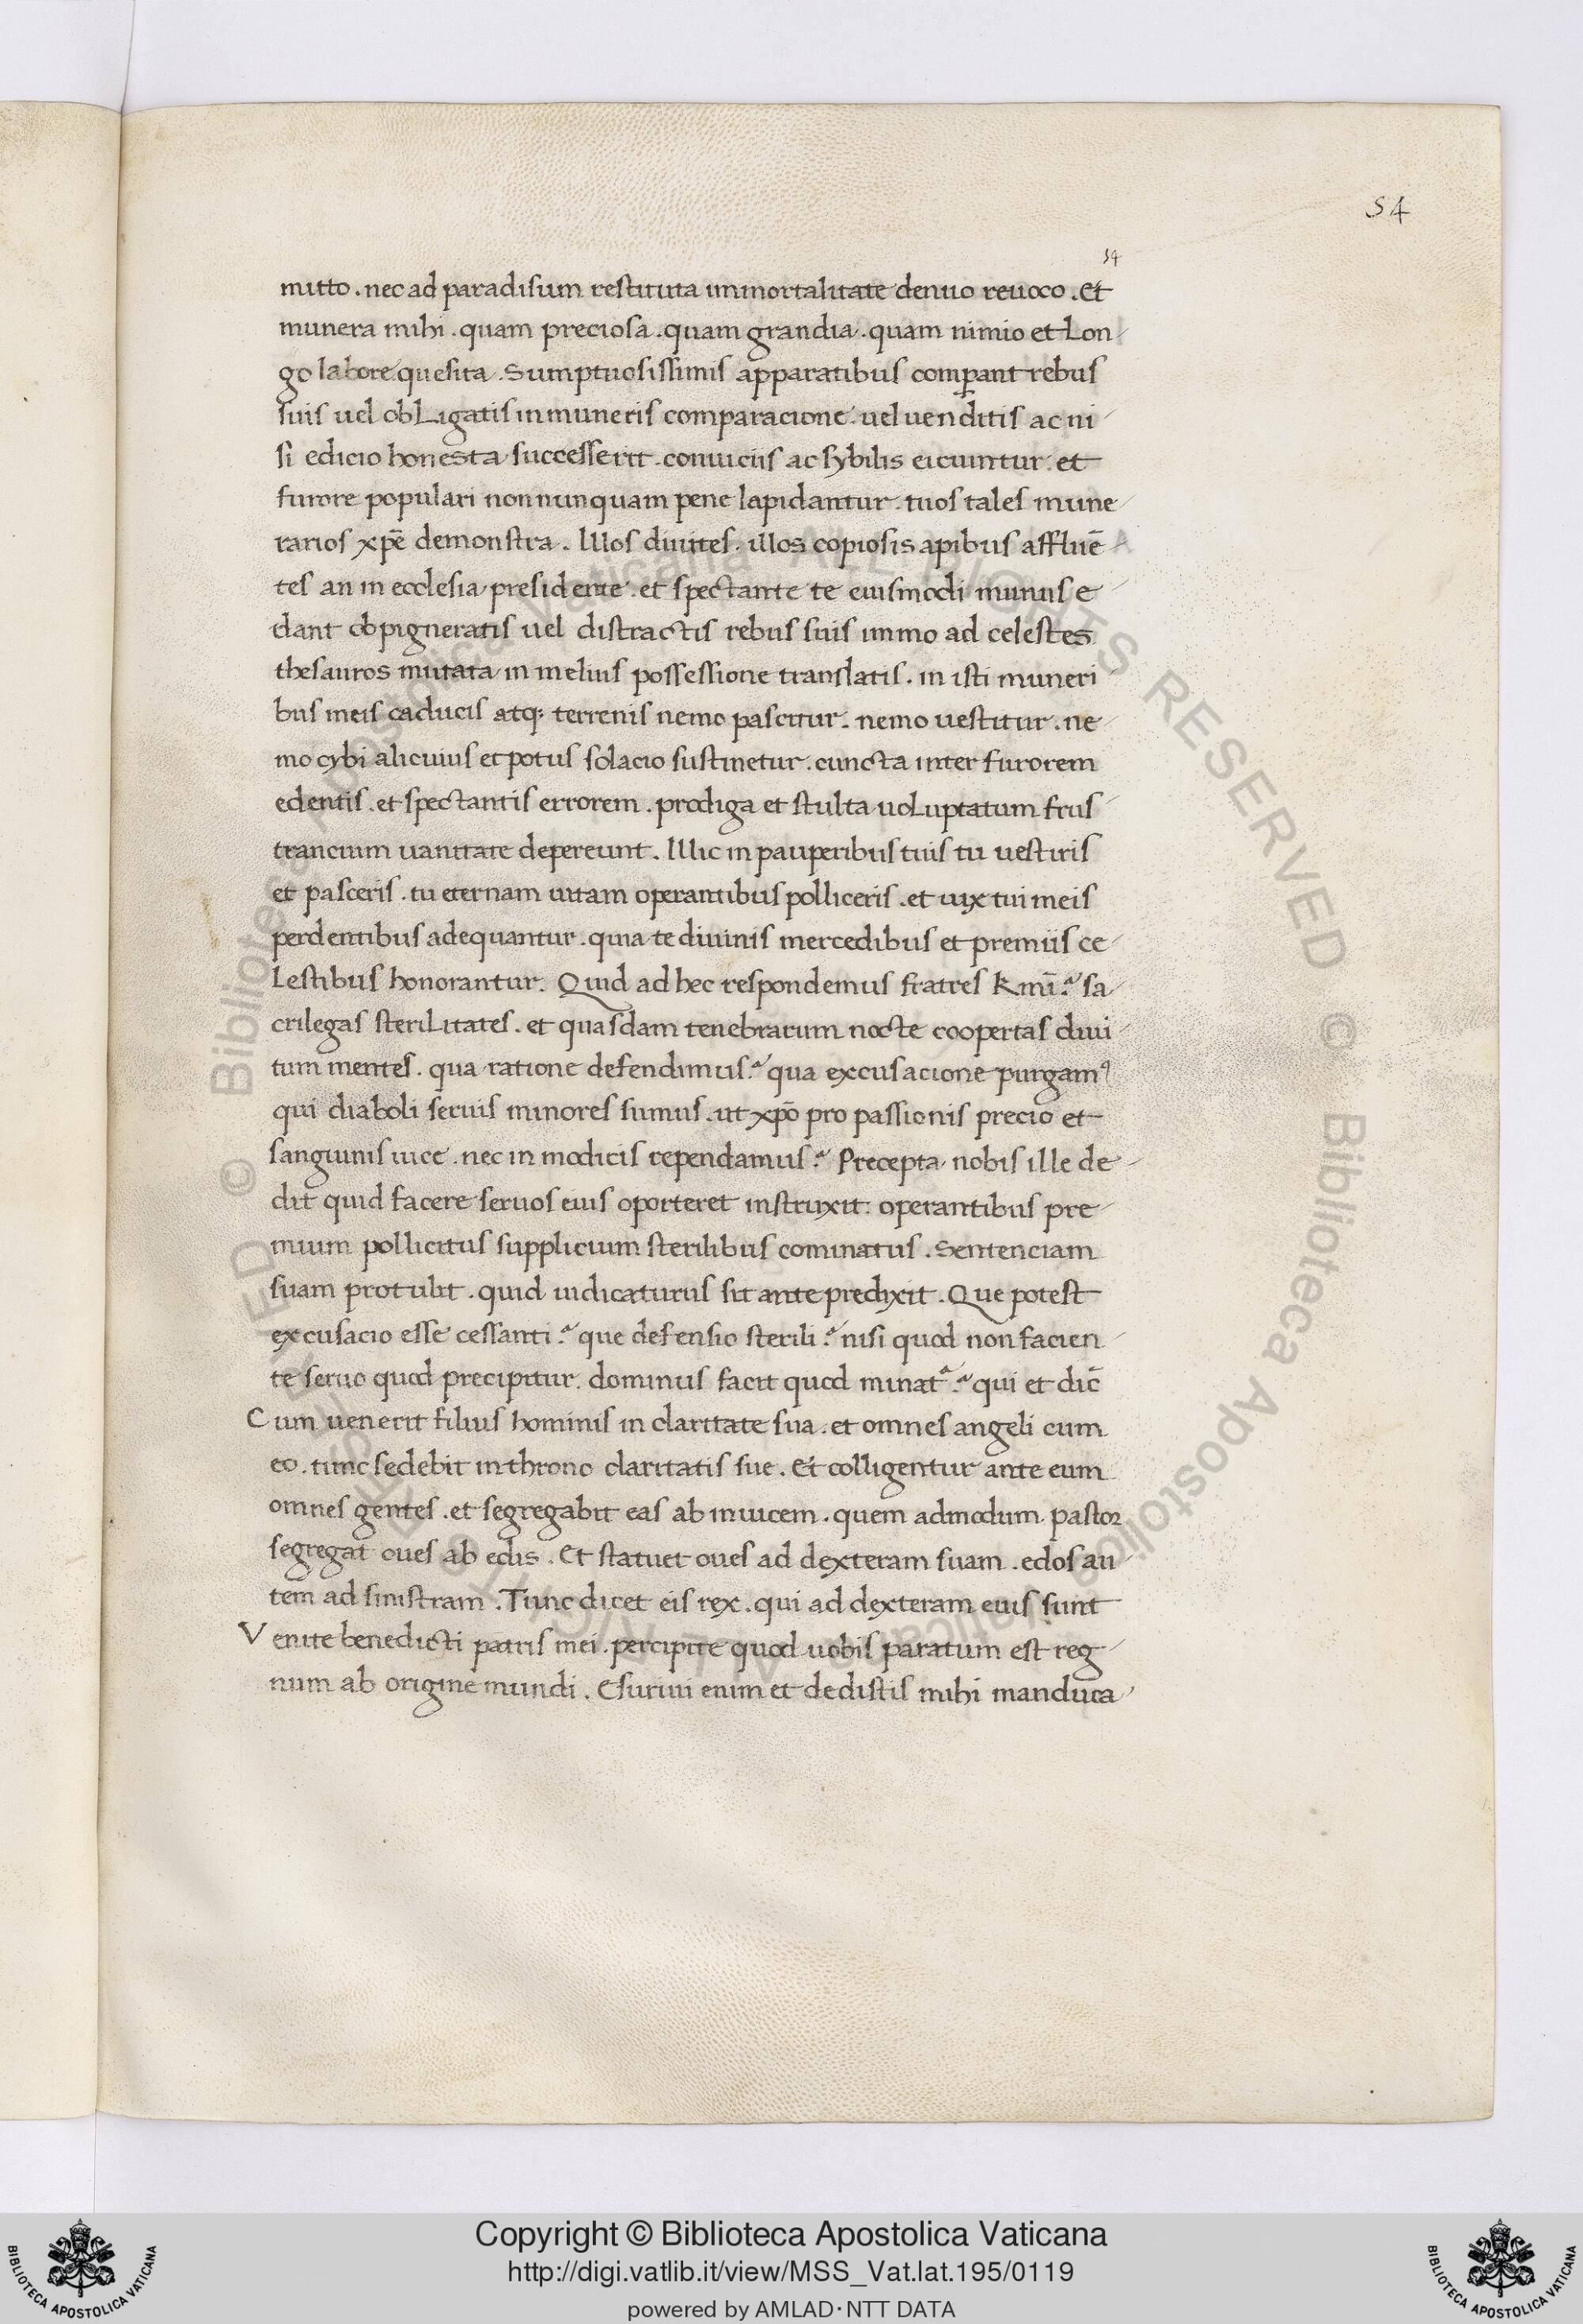 54
54
mitto . nec ad paradisum restituta inmortalitate denuo reuoco . Et
munera mihi . quam preciosa . quam grandia . quam nimio et Lon-
go labore quesita . Sumptuosissimis apparatibus comꝑant rebus
suis uel obLigatis in muneris comparacione . uel uenditis ac ni-
si edicio honesta successerit . conuiciis ac sybilis eiciuntur . et
furore populari non nunquam pene lapidantur . tuos tales mune-
rarios xp̄e demonstra . Illos diuites . illos copiosis apibus affluē-
tes an in ecclesia presidente . et spectante te eiusmodi munus e-
dant obpigneratis uel distractis rebus suis immo ad celestes
thesauros mutata in melius possessione translatis . in isti muneri-
bus meis caducis atq; terrenis nemo pascitur . nemo uestitur . ne-
mo cybi alicuius et potus solacio sustinetur . cuncta inter furorem
edentis . et spectantis errorem . prodiga et stulta uoLuptatum frus-
trancium uanitate depereunt . Illic in pauperibus tuis tu uestiris
et pasceris . tu eternam uitam operantibus polliceris . et uix tui meis
perdentibus adequantur . quia te diuinis mercedibus et premiis ce-
Lestibus honorantur . Quid ad hec respondemus fratres Kmī? sa-
crilegas steriLitates . et quasdam tenebrarum nocte coopertas diui-
tum mentes . qua ratione defendimus? qua excusacione purgamꝰ
qui diaboli seruis minores sumus . ut xp̄o pro passionis precio et
sanguinis uice . nec in modicis rependamus? Precepta nobis ille de-
dit quid facere seruos eius oporteret instruxit : operantibus pre-
mium pollicitus supplicium sterilibus cominatus . Sentenciam
suam protulit . quid iudicaturus sit ante predixit . Que potest
excusacio esse cessanti? que defensio sterili? nisi quod non facien-
te seruo quod precipitur . dominus facit quod minat᷑? qui et dic̄
Cum uenerit filius hominis in claritate sua . et omnes angeli cum
eo . tunc sedebit in throno claritatis sue . Et colligentur ante eum
omnes gentes . et segregabit eas ab inuicem . quem admodum pastor
segregat oues ab edis . Et statuet oues ad dexteram suam . edos au-
tem ad sinistram . Tunc dicet eis rex . qui ad dexteram eius sunt
Venite benedicti patris mei . percipite quod uobis paratum est reg-
num ab origine mundi . Esuriui enim et dedistis mihi manduca-
Copyright © Biblioteca Apostolica Vaticana
http://digi.vatlib.it/view/MSS_Vat.lat.195/0119
powered by AMLAD·NTT DATA
BIBLIOTECA APOSTOLICA VATICANA
BIBLIOTECA APOSTOLICA VATICANA